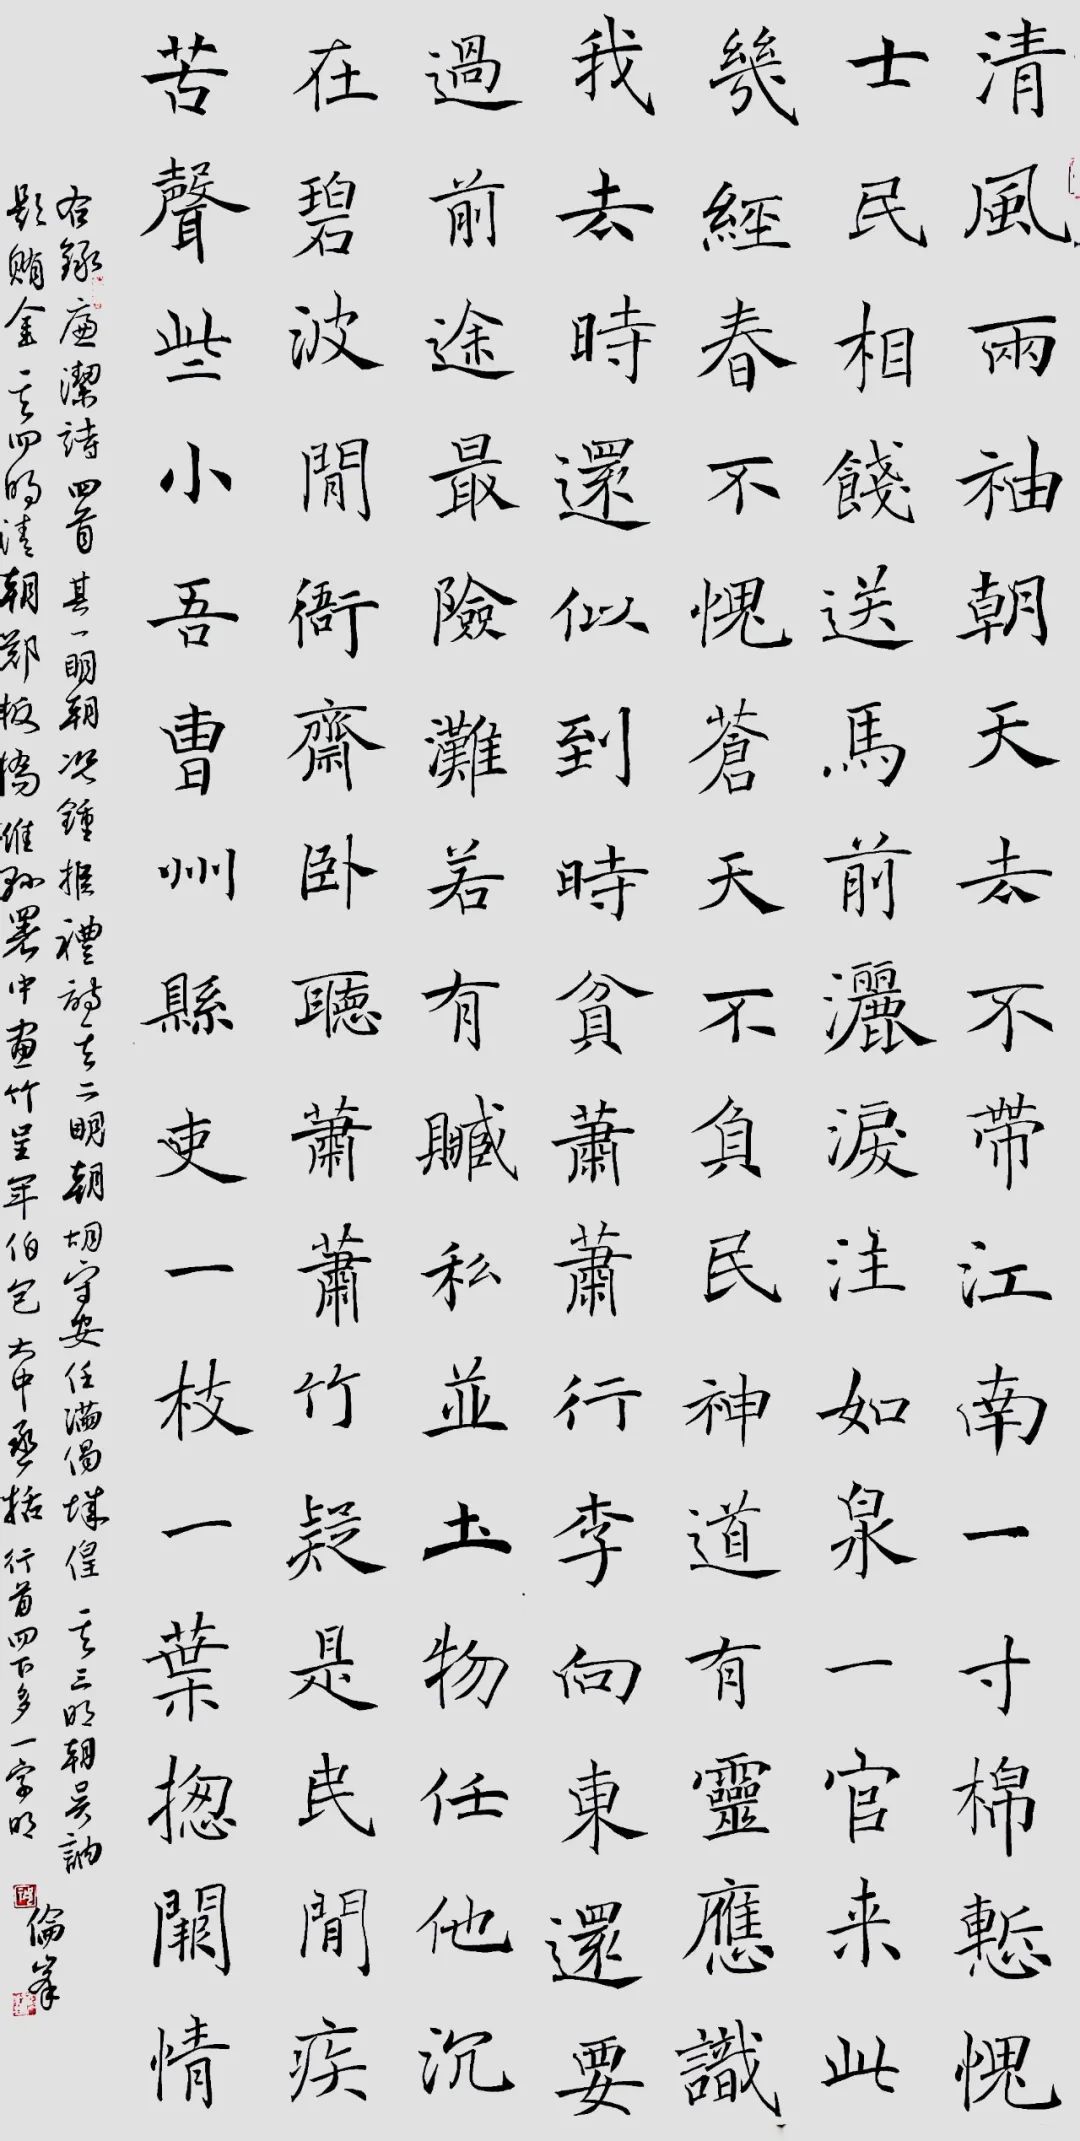 清風兩袖朝天去不帶江南一寸棉慙愧
士民相餞送馬前灑淚注如泉一官来此
幾經春不愧蒼天不負民神道有靈應識
我去時還似到時貧蕭蕭行李向東還要
過前途最險灘若有贓私並土物任他沉
在碧波閒衙齋卧聽蕭蕭竹疑是民間疾
苦聲些小吾曹州縣吏一枝一葉揔關情
右錄廉潔詩四首其一明朝况鍾拒禮詩其二明朝胡守安任滿偈城隍其三明朝吴訥
題賄金其四明清朝鄭板橋濰縣署中畫竹呈年伯包大中丞括行首四下多一字明
倫峯